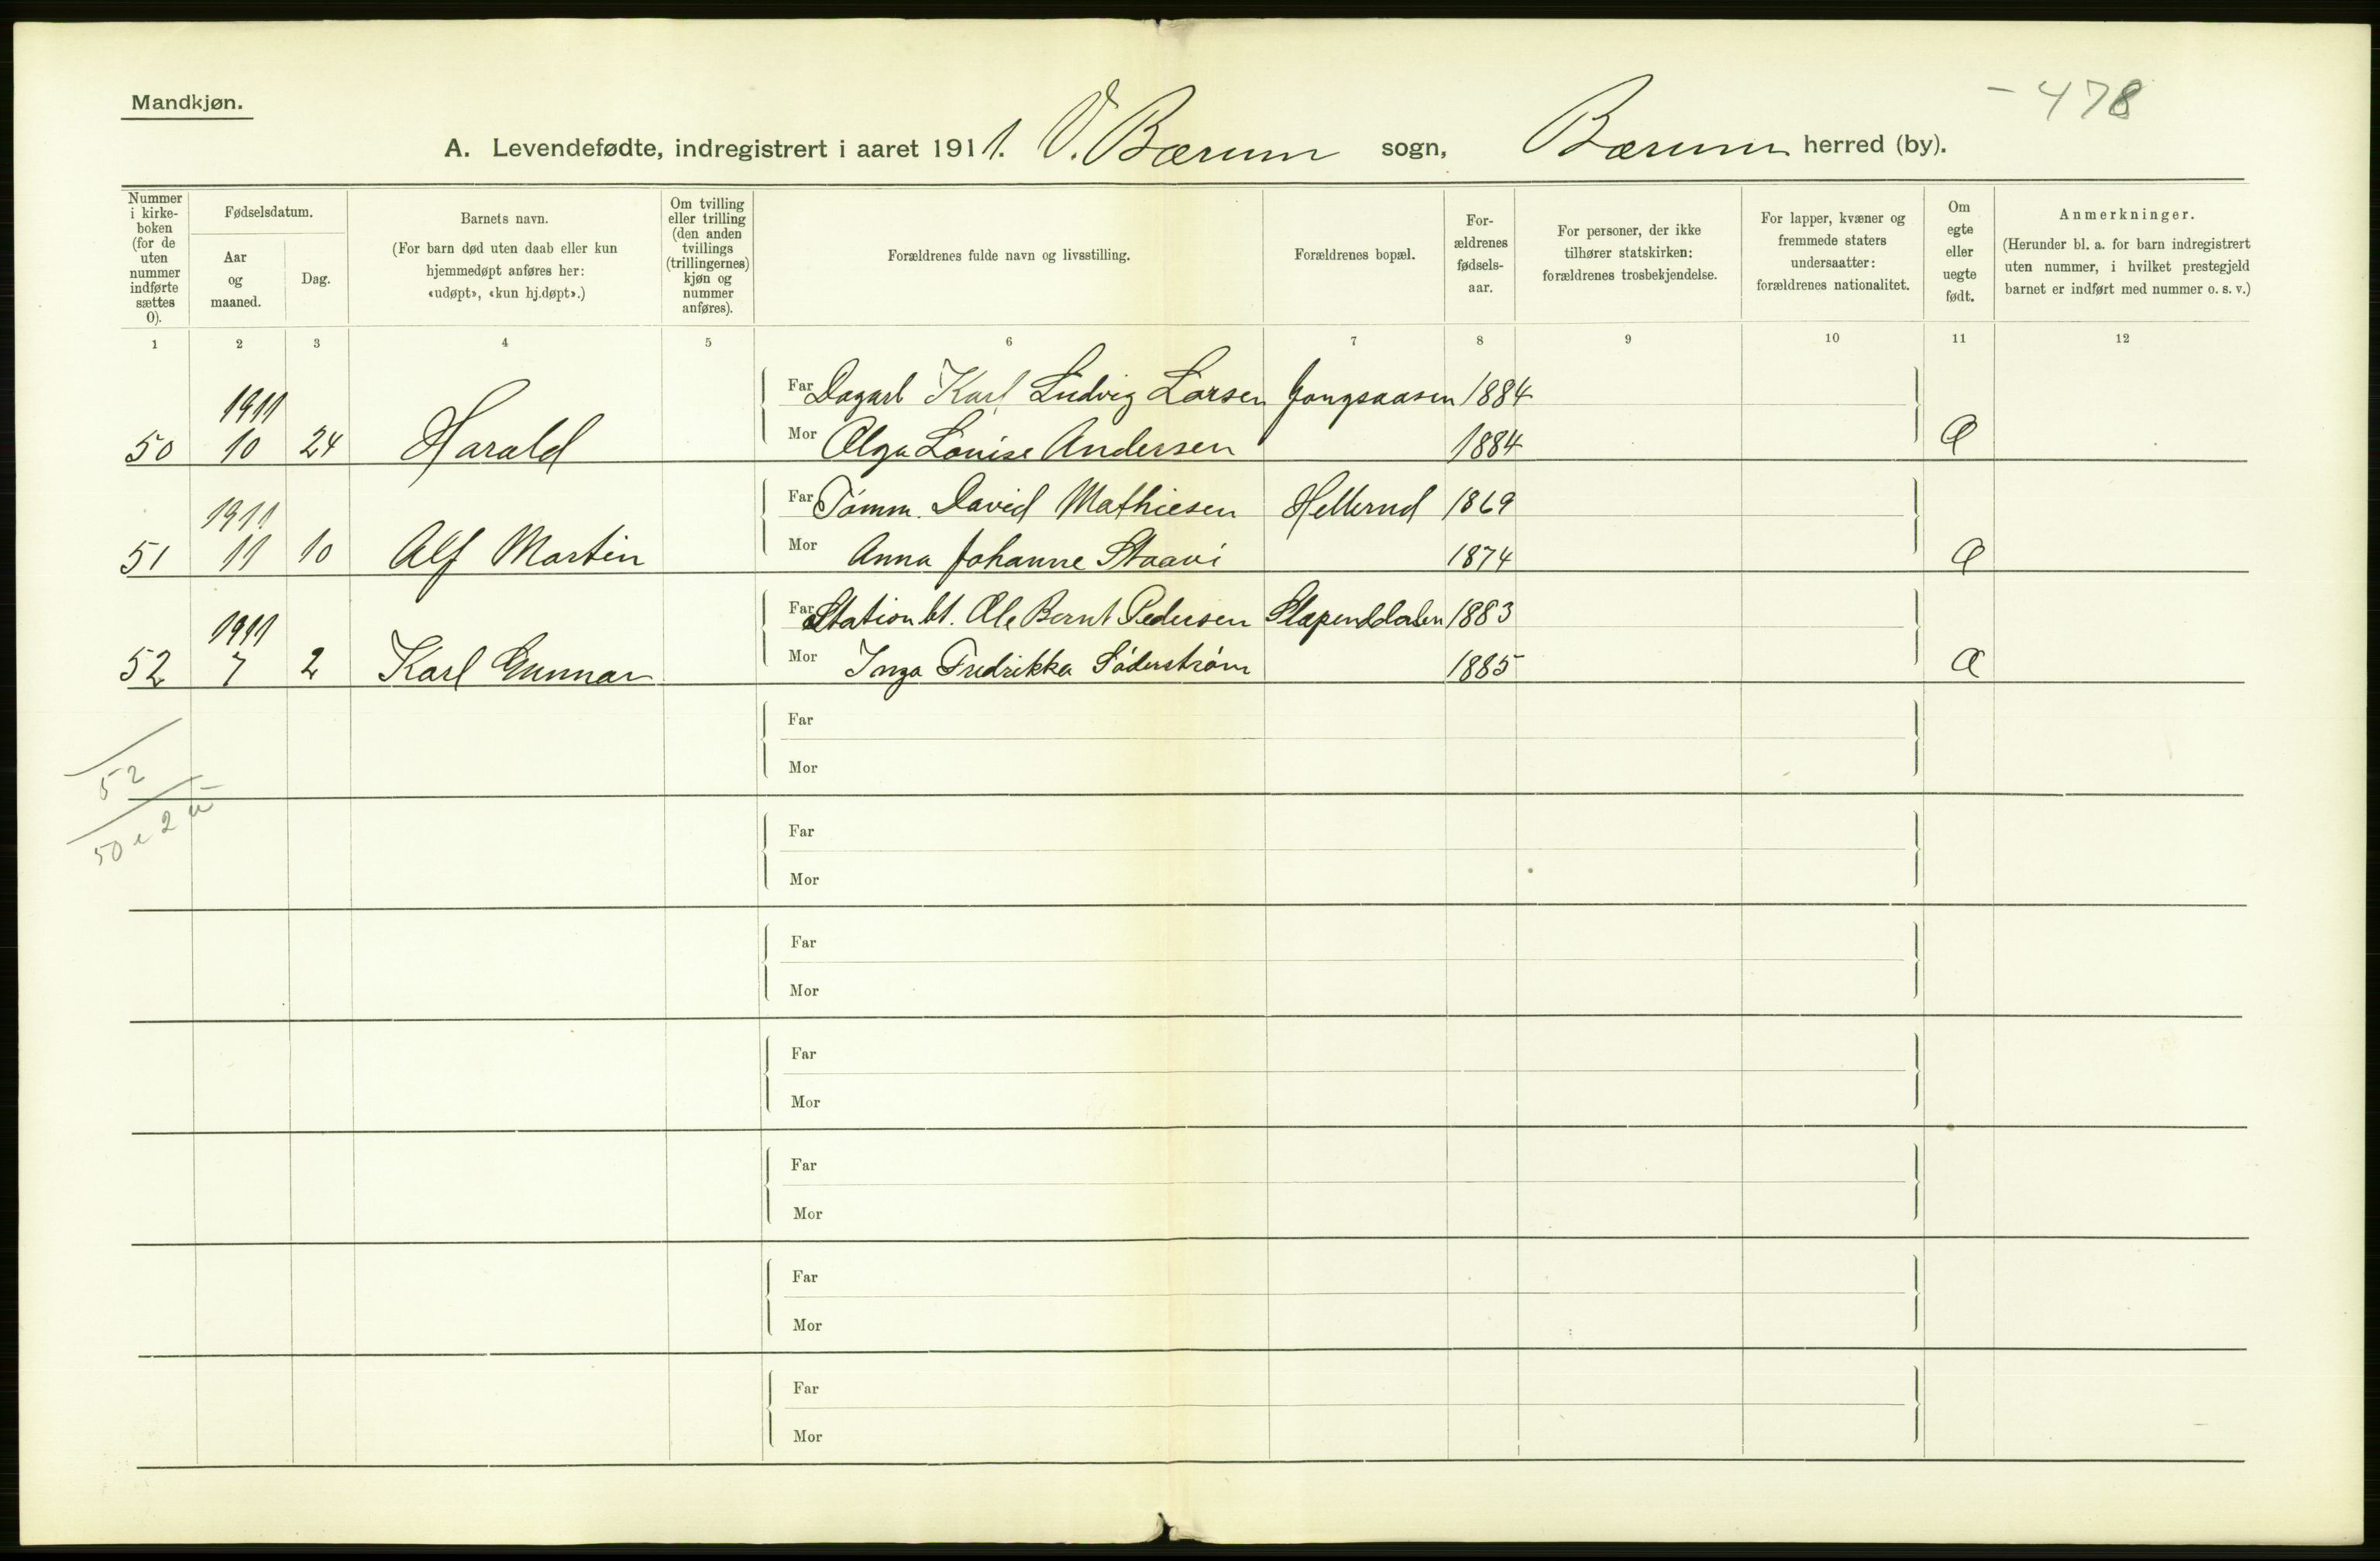 Mandkjøn.
- 478
A. Levendefødte, indregistrert i aaret 1911. V. Bærum sogn, Bærum herred (by).
Nummer i kirke- boken (for de uten nummer indførte sættes 0).
Fødselsdatum.
Aar og maaned.
Dag.
Barnets navn.
(For barn død uten daab eller kun hjemmedøpt anføres her: «udøpt», «kun hj.døpt».)
Om tvilling eller trilling (den anden tvillings (trillingernes) kjøn og nummer anføres).
Forældrenes fulde navn og livsstilling.
Forældrenes bopæl.
For- ældrenes fødsels- aar.
For personer, der ikke tilhører statskirken: forældrenes trosbekjendelse.
For lapper, kvæner og fremmede staters undersaatter: forældrenes nationalitet.
Om egte eller uegte født.
Anmerkninger.
(Herunder bl. a. for barn indregistrert uten nummer, i hvilket prestegjeld barnet er indført med nummer o. s. v.)
1 2 3 4 5 6 7 8 9 10 11 12
1911 Far Dagarb Karl Ludvig Larsen Jongsaasen 1884
50 10 24 Harald Mor Olga Louise Andersen 1884 e
1911 Far Tømm. David Mathiesen Hellerud 1869
51 11 10 Alf Martin Mor Anna Johanne Staavi 1874 e
1911 Far Station bt. Ole Bernt Pedersen Slæpenddalen 1883
52 7 2 Karl Gunnar Mor Inga Fredrikka Söderström 1885 e
Far
Mor
52
50 e 2 u
Far
Mor
Far
Mor
Far
Mor
Far
Mor
Far
Mor
Far
Mor